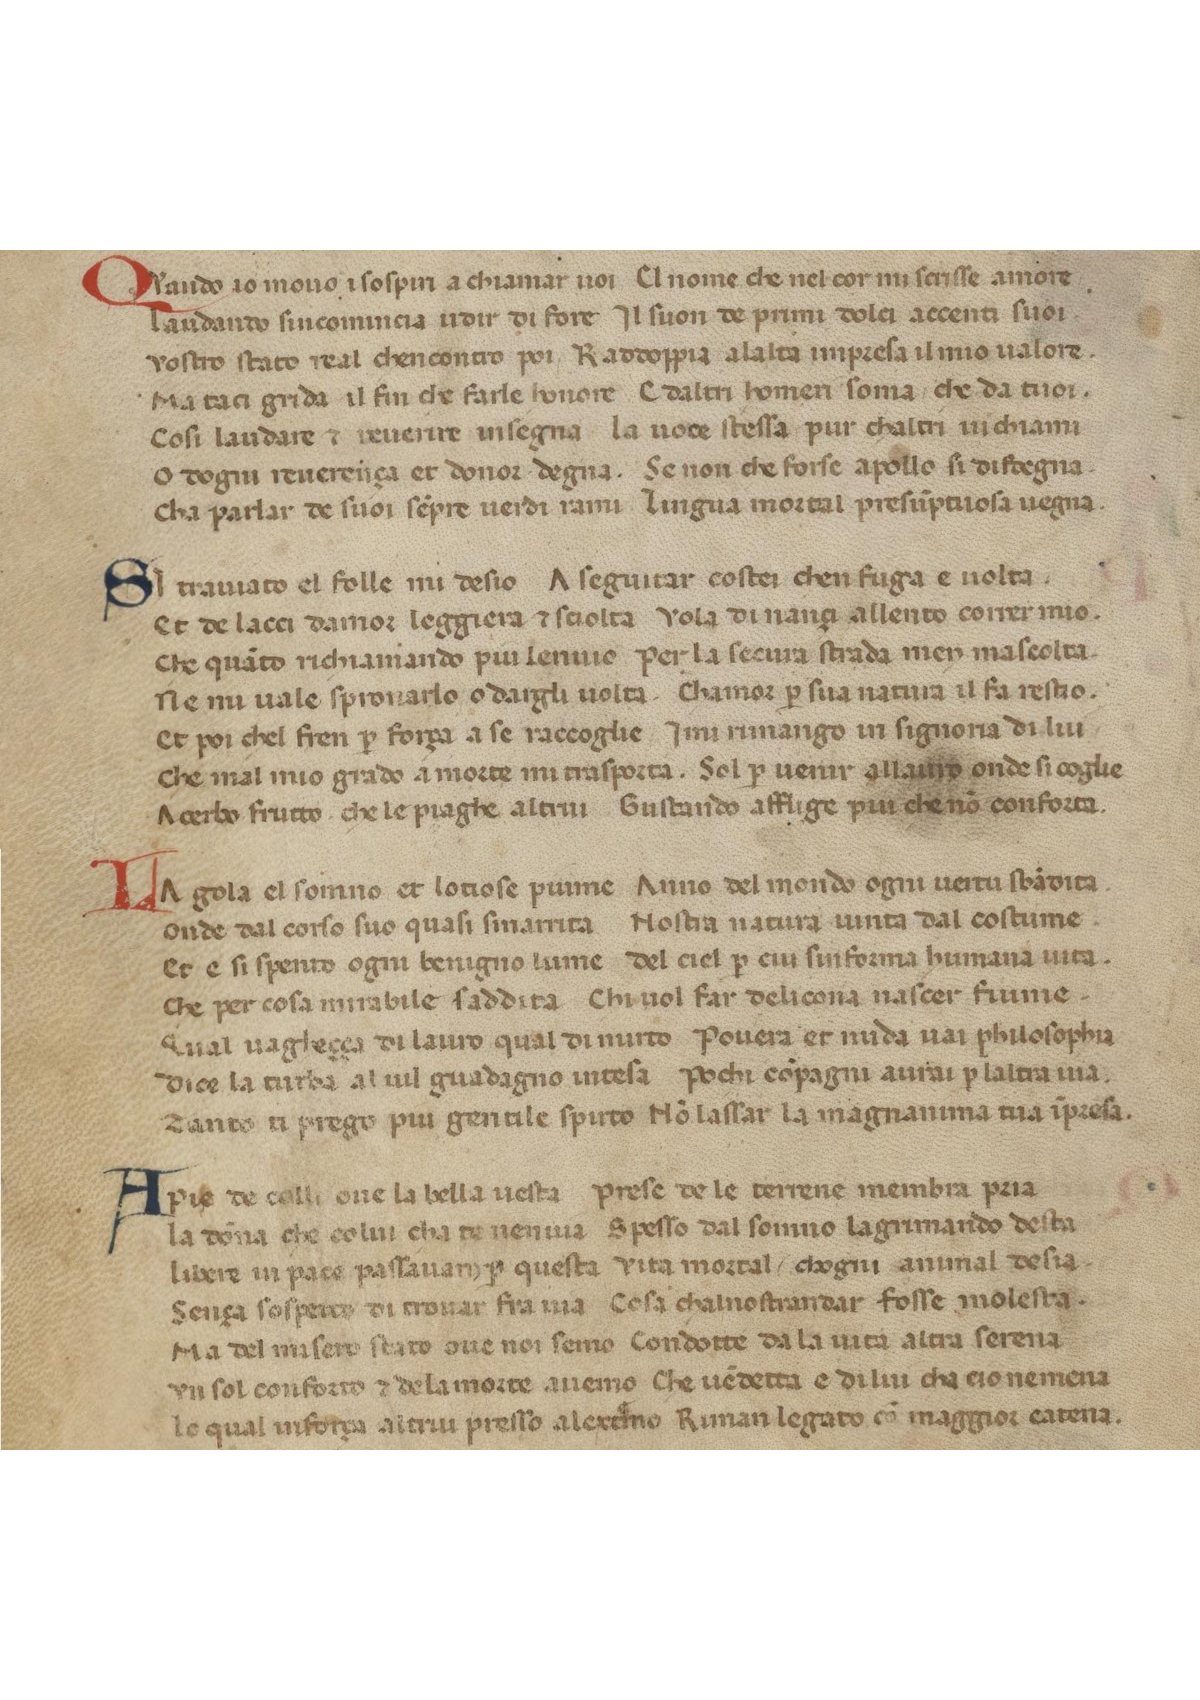 Quando io mouo i sospiri a chiamar uoi El nome che nel cor mi scrisse amore
Laudando sincomincia udir di fore Il suon de primi dolci accenti suoi
Vostro stato real chencontro poi Radoppia alalta impresa il mio ualore.
Ma taci grida il fin che farle honore E daltri homeri soma che da tuoi.
Cosi laudare ⁊ reuerire insegna La uoce stessa pur chaltri ui chiami
O dogni reuerença et donor degna. Se non che forse apollo si disdegna
Cha parlar de suoi sẽpre uerdi rami Lingua mortal presũptuosa uegna.
SI trauiato el folle mi desio A seguitar costei chen fuga e uolta.
Et de lacci damor leggiera ⁊ sciolta Vola dinançi allento correr mio.
Che quãto richiamando piu lenuio Per la secura strada men mascolta
Ne mi uale spronarlo o dargli uolta. Chamor ꝑ sua natura il fa restio.
Et poi chel fren ꝑ força a se raccoglie Imi rimango in signoria di lui
Che mal mio grado a morte mi trasporta. Sol ꝑ uenir allauro onde si coglie
Acerbo frutto che le piaghe altrui Gustando afflige piu che nõ conforta.
LA gola el somno et lotiose piume Anno del mondo ogni uertu sbãdita
Onde dal corso suo quasi smarrita Nostra natura uinta dal costume
Et e si spento ogni benigno lume del ciel ꝑ cui sinforma humana uita.
Che per cosa mirabile saddita Chi uol far delicona nascer fiume
Qual uagheçça di lauro qual di mirto Pouera et nuda uai philosophia
Dice la turba al uil guadagno intesa Pochi cõpagni aurai ꝑ laltra uia.
Tanto ti prego piu gentile spirto Nõ lassar la magnanima tua ĩpresa.
A pie de colli oue la bella uesta Prese de le terrene membra pria
la dõna che colui cha te nenuia Spesso dal somno lagrimando desta
libere in pace passauam ꝑ questa Vita mortal / chogni animal desia
Sença sospetto di trouar fra uia Cosa chalnostrandar fosse molesta.
Ma del misero stato oue noi semo Condotte da la uita altra serena
Vn sol conforto ⁊ dela morte auemo Che uẽdetta e di lui cha cio nemena
lo qual in força altrui presso alextremo Riman legato cõ maggior catena.